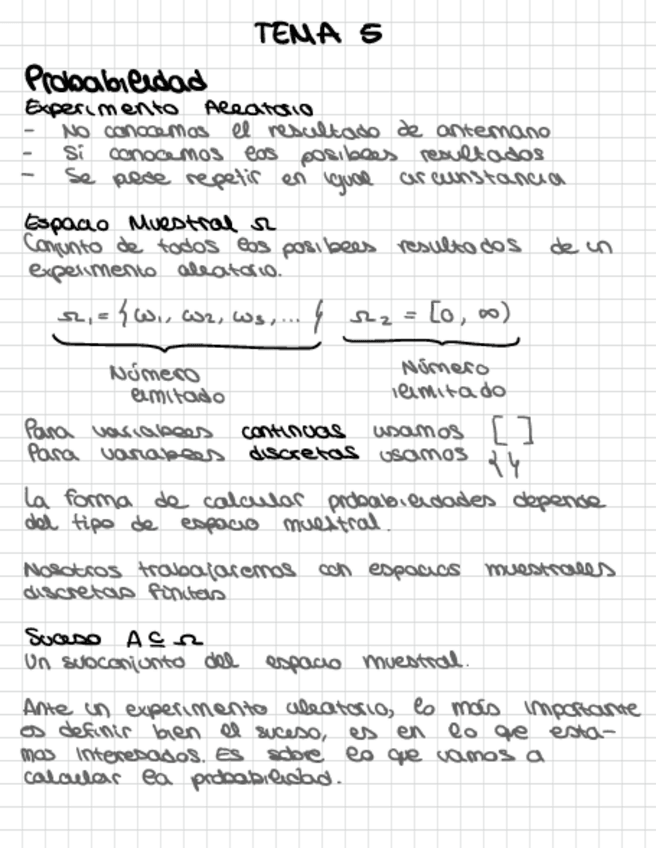 TEMA 5
Probabilidad
Experimento Aleatorio
- No conocemos el resultado de antemano
- Sí conocemos los posibles resultados
- Se pede repetir en igual circunstancia
Espacio Muestral Ω
Conjunto de todos los posibles resultados de un
experimento aleatorio.
Ω₁ = {ω₁, ω₂, ω₃, ... } Ω₂ = [0, ∞)
Número Número
limitado ilimitado
Para variables continuas usamos [ ]
Para variables discretas usamos { }
La forma de calcular probabilidades depende
del tipo de espacio muestral.
Nosotros trabajaremos con espacios muestrales
discretos finitos
Suceso A ⊆ Ω
Un subconjunto del espacio muestral.
Ante un experimento aleatorio, lo más importante
es definir bien el suceso, es en lo qe esta-
mos interesados. Es sobre lo qe vamos a
calcular la probabilidad.